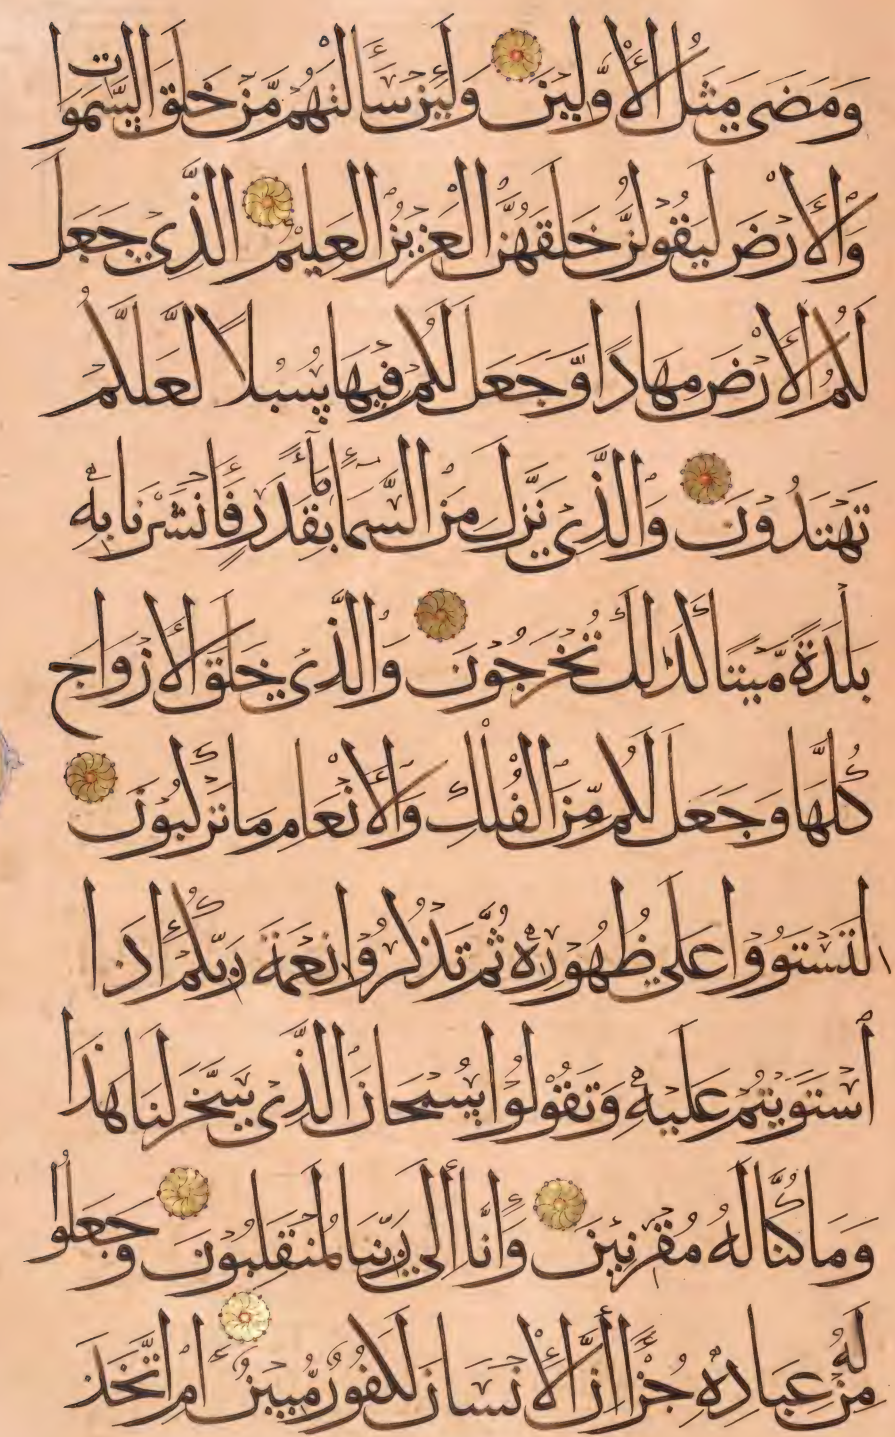 وَمَضَىٰ مَثَلُ الْأَوَّلِينَ وَلَئِن سَأَلْتَهُم مَّنْ خَلَقَ السَّمٰوَاتِ
وَالْأَرْضَ لَيَقُولُنَّ خَلَقَهُنَّ الْعَزِيزُ الْعَلِيمُ الَّذِي جَعَلَ
لَكُمُ الْأَرْضَ مِهَادًا وَّجَعَلَ لَكُمْ فِيهَا سُبُلًا لَّعَلَّكُمْ
تَهْتَدُونَ وَالَّذِي نَزَّلَ مِنَ السَّمَاءِ مَاءً بِقَدَرٍ فَأَنشَرْنَا بِهِ
بَلْدَةً مَّيْتًا كَذَٰلِكَ تُخْرَجُونَ وَالَّذِي خَلَقَ الْأَزْوَاجَ
كُلَّهَا وَجَعَلَ لَكُم مِّنَ الْفُلْكِ وَالْأَنْعَامِ مَا تَرْكَبُونَ
لِتَسْتَوُوا عَلَىٰ ظُهُورِهِ ثُمَّ تَذْكُرُوا نِعْمَةَ رَبِّكُمْ إِذَا
اسْتَوَيْتُمْ عَلَيْهِ وَتَقُولُوا سُبْحَانَ الَّذِي سَخَّرَ لَنَا هَٰذَا
وَمَا كُنَّا لَهُ مُقْرِنِينَ وَإِنَّا إِلَىٰ رَبِّنَا لَمُنقَلِبُونَ وَجَعَلُوا
لَهُ مِنْ عِبَادِهِ جُزْءًا إِنَّ الْإِنسَانَ لَكَفُورٌ مُّبِينٌ أَمِ اتَّخَذَ